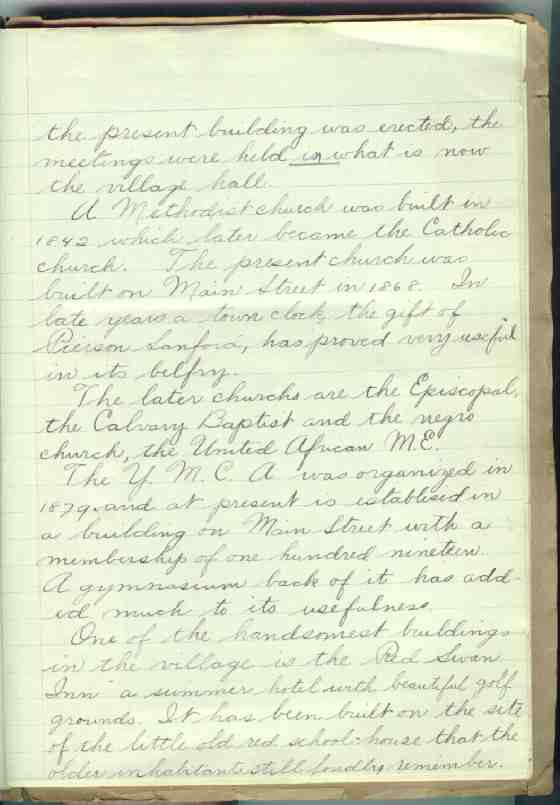 the present building was erected, the
meetings were held in what is now
the village hall.
A Methodist church was built in
1842 which later became the Catholic
church. The present church was
built on Main Street in 1868. In
late years a town clock, the gift of
Pierson Sanford, has proved very useful
in its belfry.
The later churchs are the Episcopal,
the Calvary Baptist and the negro
church, the United African M.E.
The Y. M. C. A was organized in
1879, and at present is establised in
a building on Main Street with a
membership of one hundred nineteen.
A gymnasium back of it has add-
ed much to its usefulness.
One of the handsomest buildings
in the village is the Red Swan
Inn" a summer hotel with beautiful golf
grounds. It has been built on the site
of the little old red school-house that the
older inhabitants still fondly remember.